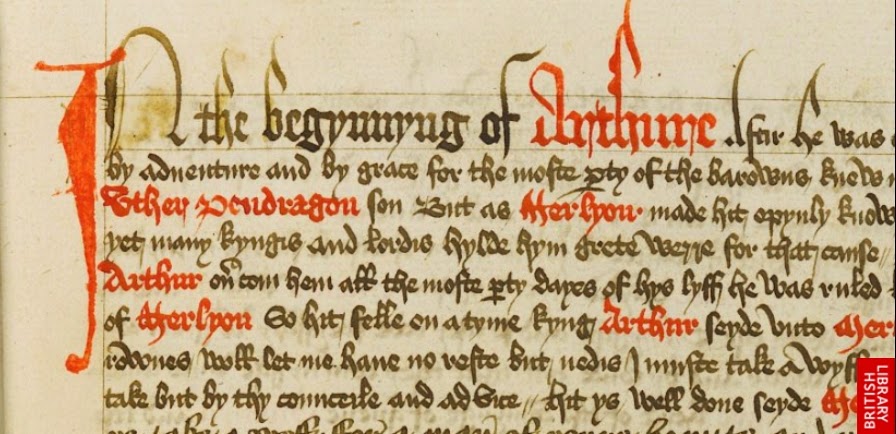 IN the begynnyng of Arthure Aftir he was
by adventure and by grace for the moste pty of the barowns knew
Uther Pendragon son But as Merlyon made hit opynly know
yet many kyngis and lordis hylde hym grete werre for that cause
Arthur on com hem all the moste pty dayes of hys lyff he was ruled
of Merlyon So hit felle on a tyme kyng Arthur seyde unto Mer
rownes woll let me have no reste but nedis I muste take a wyff
take but by thy counceile and advice hit ys well done seyde
BRITISH
LIBRARY